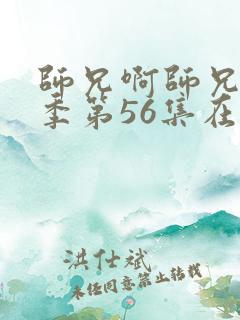 師兄啊師兄
季第56集在
洪仕斌
未经同意禁止转载